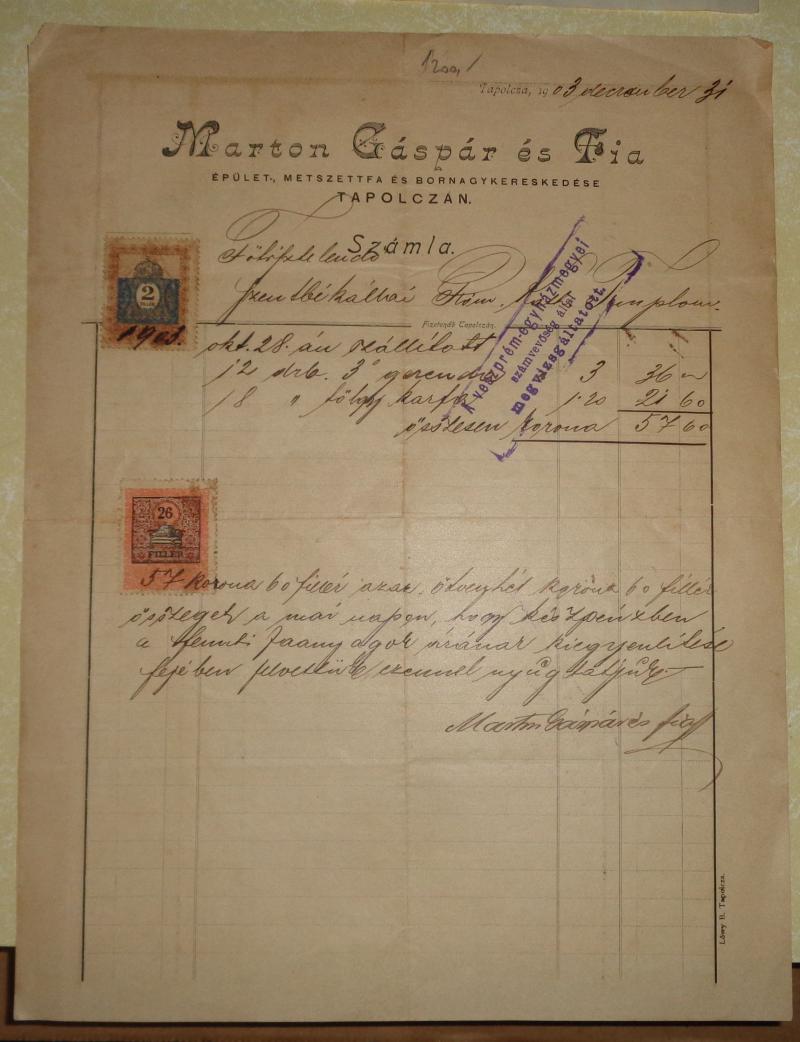 Tapolcza, 1903 december 31
Marton Gáspár és Fia
ÉPÜLET-, METSZETTFA ÉS BORNAGYKERESKEDÉSE
TAPOLCZÁN.
Számla.
Főtisztelendő
Szentbékállai Róm. Kath. Templom.
Fizetendő Tapolczán.
A veszprém-egyházmegyei
számvevőség által
megvizsgáltatott.
2
1903.
okt. 28.-án szállított
12 drb. 3° gerenda 3 36 —
18 " tölgy karfa 1·20 21 60
összesen korona 57 60
26
FILLÉR
57 korona 60 fillér azaz ötvenhét korona 60 fillér
összeget a mai napon, hogy készpénzben
a fennti faanyagok árának kiegyenlítése
fejében felvettük ezennel nyugtatjuk.
Marton Gáspár és fia
Lőwy B. Tapolcza.